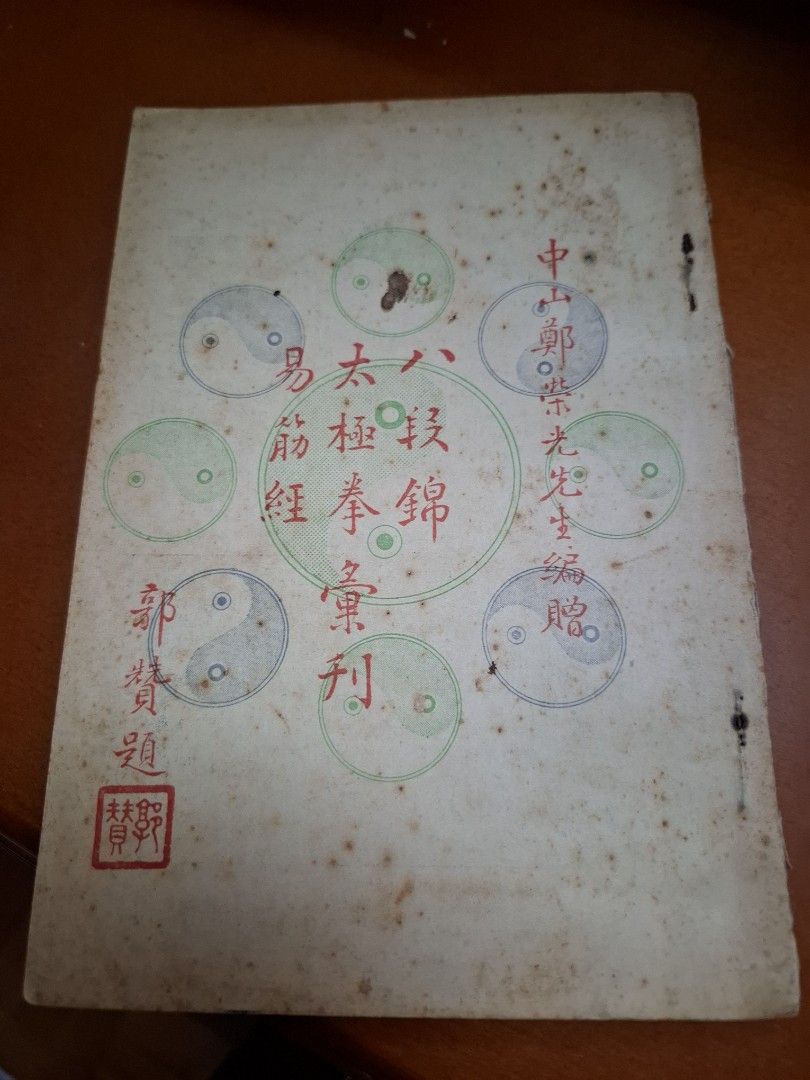 中山鄭榮光先生編贈
八段錦
太極拳彙刊
易筋經
郭贊題
郭贊